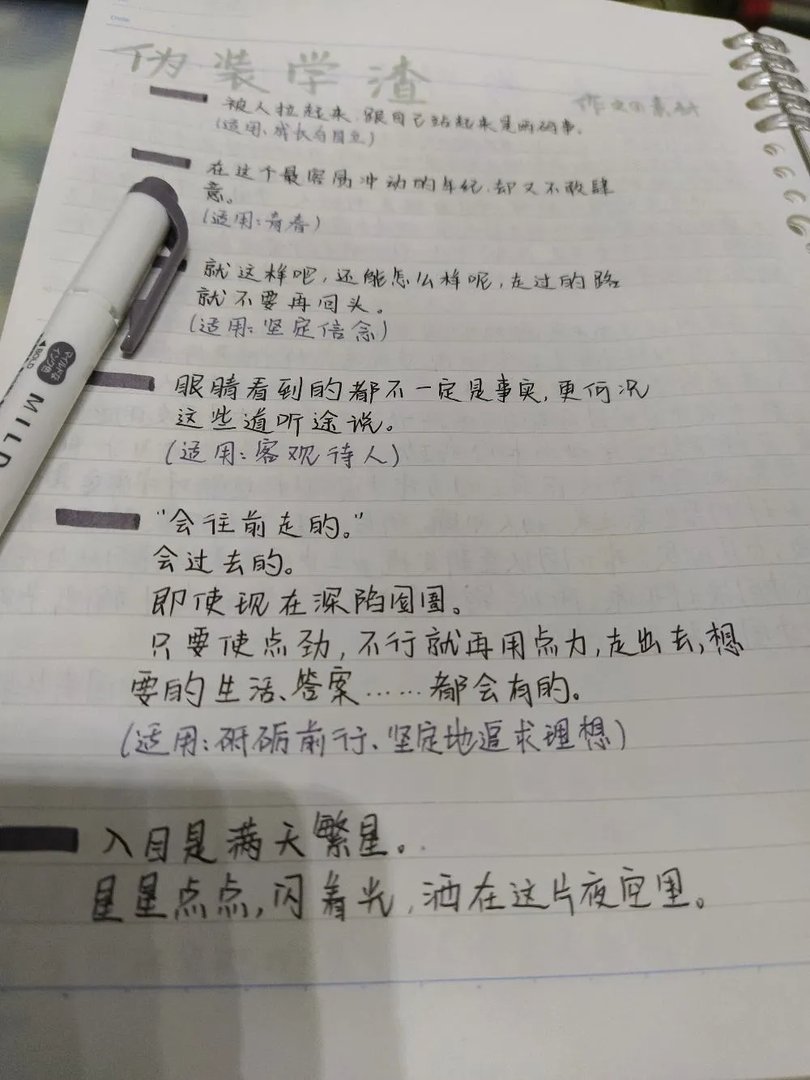 Date
伪装学渣
作文の素材
被人拉起来,跟自己站起来是两码事。
(适用:成长与自立)
在这个最容易冲动的年纪,却又不敢肆
意。
(适用:青春)
就这样吧,还能怎么样呢,走过的路
就不要再回头。
(适用:坚定信念)
眼睛看到的都不一定是事实,更何况
这些道听途说。
(适用:客观待人)
“会往前走的。”
会过去的。
即使现在深陷囹圄。
只要使点劲,不行就再用点力,走出去,想
要的生活、答案……都会有的。
(适用:砥砺前行、坚定地追求理想)
入目是满天繁星。
星星点点,闪着光,洒在这片夜空里。
マイルドな
インク色
MILD